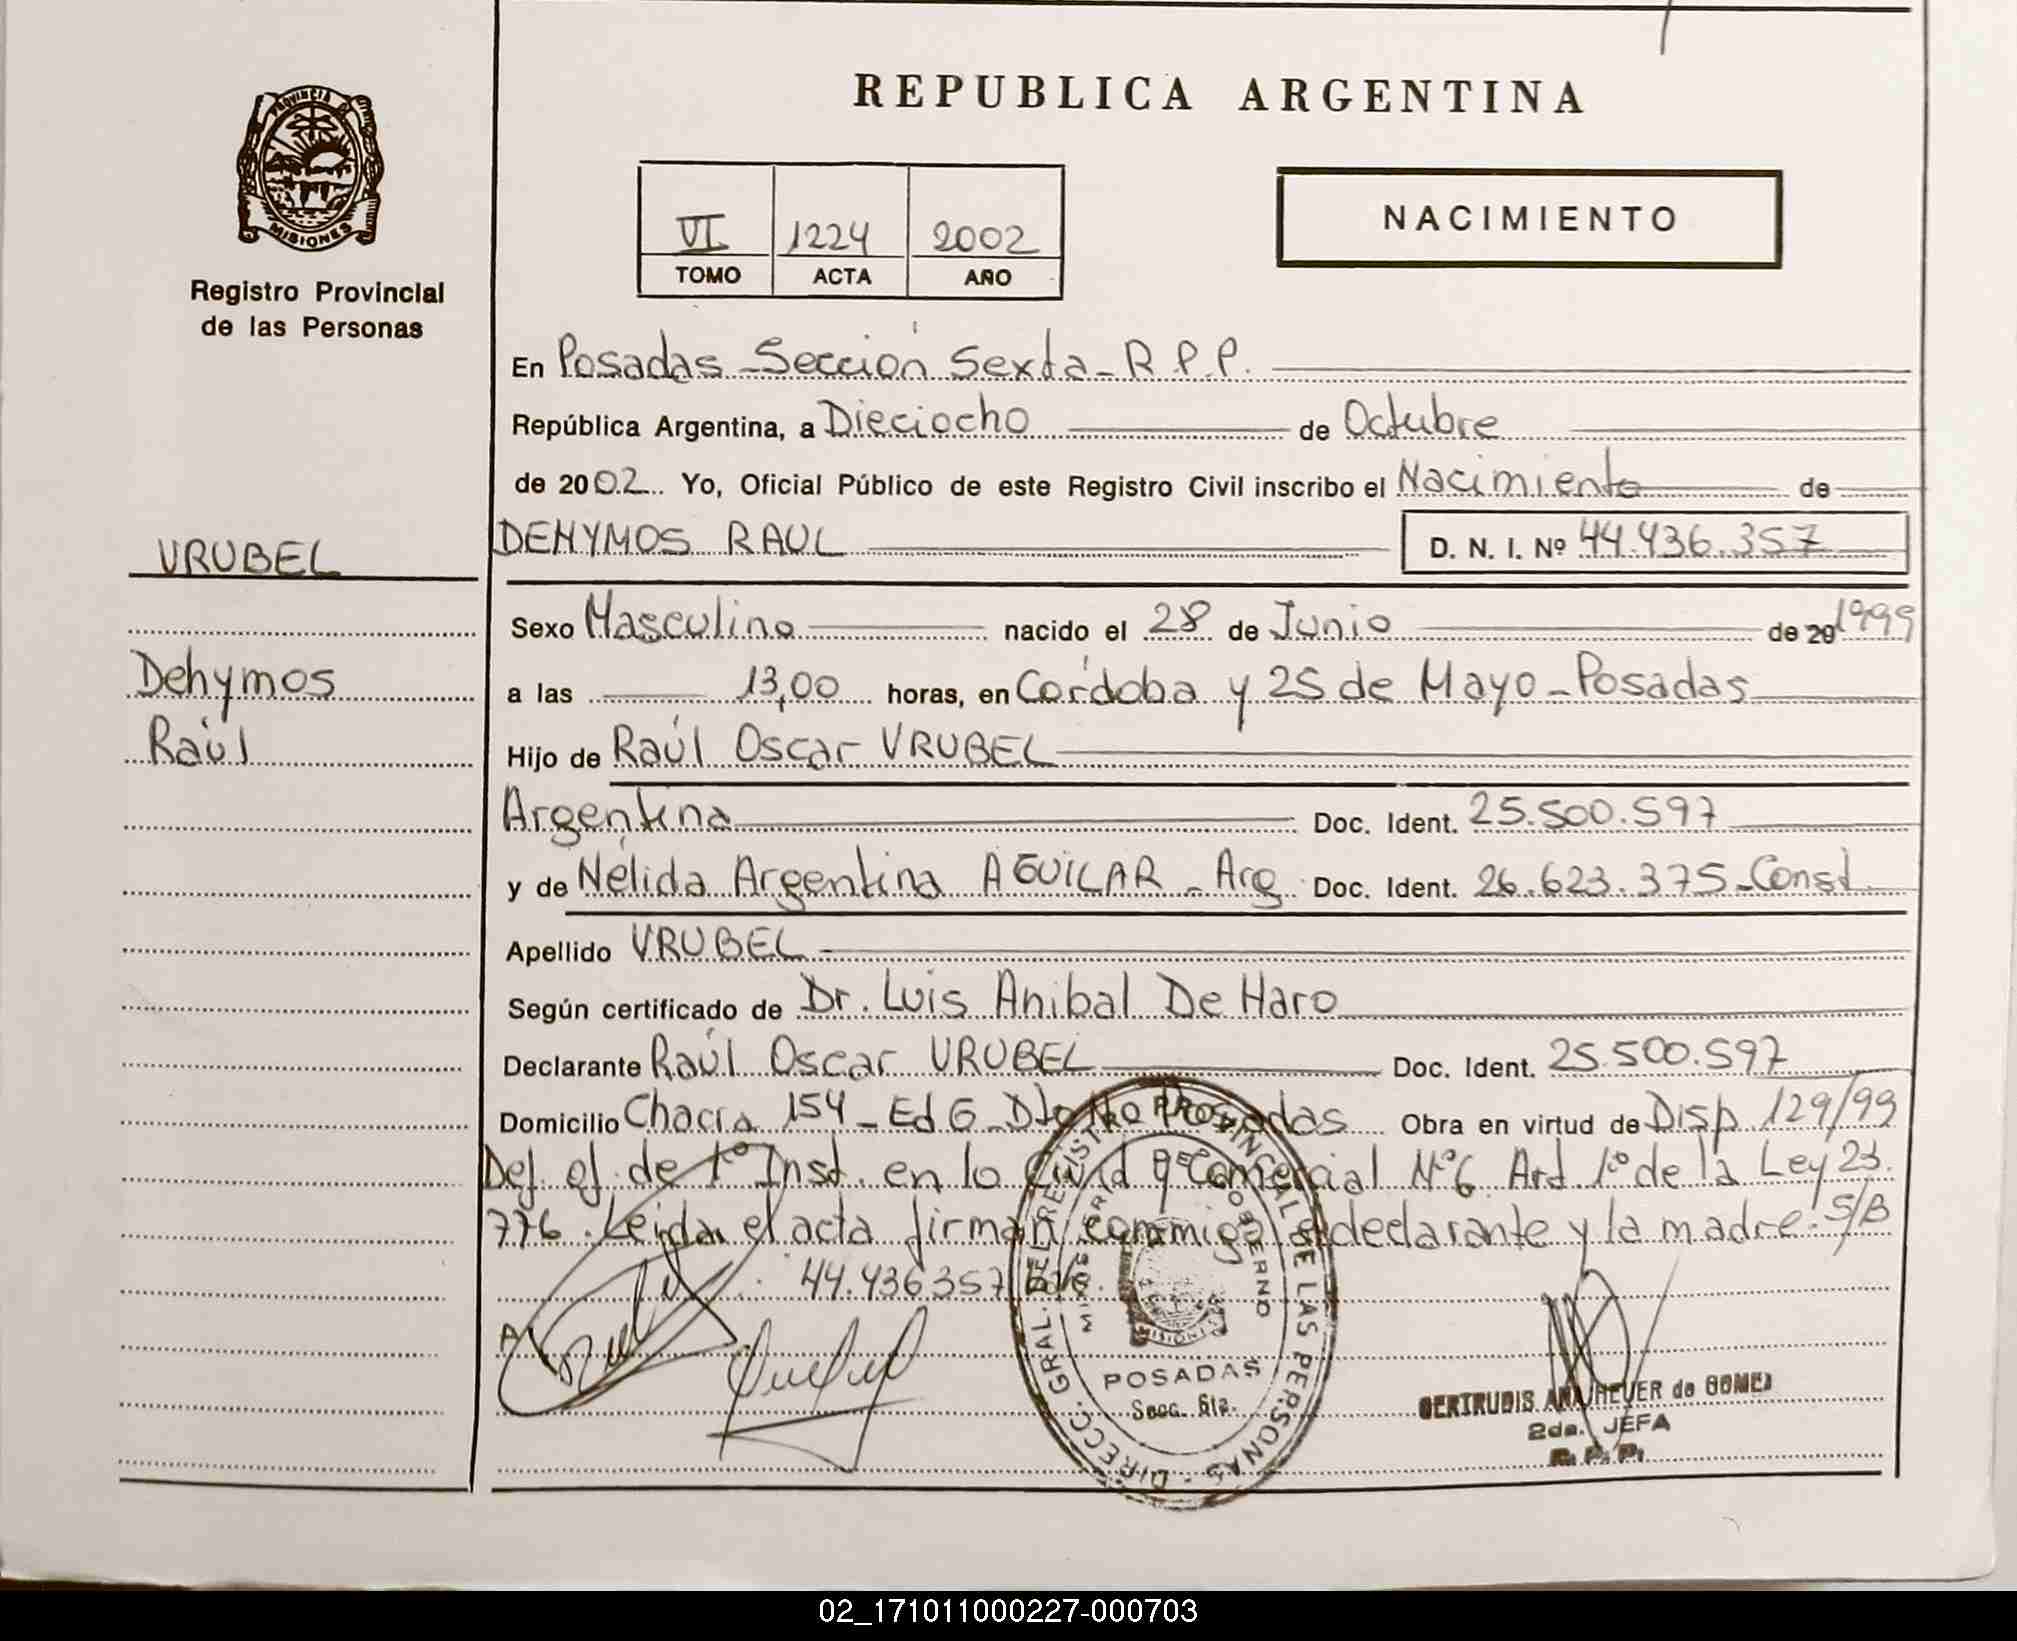 REPUBLICA ARGENTINA
PROVINCIA DE
MISIONES
Registro Provincial
de las Personas
VI 1224 2002
TOMO ACTA AÑO
NACIMIENTO
En Posadas - Sección Sexta - R.P.P.
República Argentina, a Dieciocho de Octubre
de 2002. Yo, Oficial Público de este Registro Civil inscribo el Nacimiento de
VRUBEL
DEHYMOS RAUL D. N. I. Nº 44.436.357
Sexo Masculino nacido el 28 de Junio de 20 1999
Dehymos
a las 13,00 horas, en Córdoba y 25 de Mayo - Posadas
Raúl
Hijo de Raúl Oscar VRUBEL
Argentina Doc. Ident. 25.500.597
y de Nélida Argentina AGUILAR - Arg Doc. Ident. 26.623.375 - Const
Apellido VRUBEL
Según certificado de Dr. Luis Anibal De Haro
Declarante Raúl Oscar VRUBEL Doc. Ident. 25.500.597
Domicilio Chacra 154 - Ed 6 - Posadas Obra en virtud de Disp 129/99
Def. of. de 1º Inst. en lo Civil y Comercial Nº 6. Art. 1º de la Ley 23.
776. Leida el acta firman conmigo el declarante y la madre. S/B
44.436357 Vale.
DIRECC. GRAL. DEL REGISTRO PROVINCIAL DE LAS PERSONAS
GOBIERNO
MISIONES
POSADAS
Secc. 6ta.
GERTRUDIS ANA HEUER de GOMEZ
2da. JEFA
R. P. P.
02_171011000227-000703